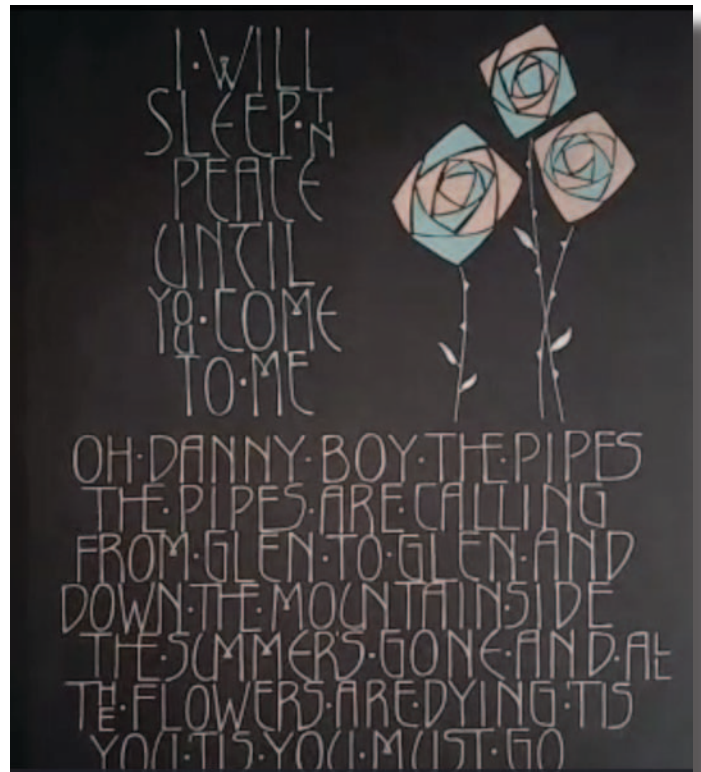 I·WILL
SLEEP·IN
PEACE
UNTIL
YOU·COME
TO·ME
OH·DANNY·BOY·THE·PIPES
THE·PIPES·ARE·CALLING
FROM·GLEN·TO·GLEN·AND
DOWN·THE·MOUNTAINSIDE
THE·SUMMER'S·GONE·AND·ALL
THE·FLOWERS·ARE·DYING·'TIS
YOU·TIS·YOU·MUST·GO